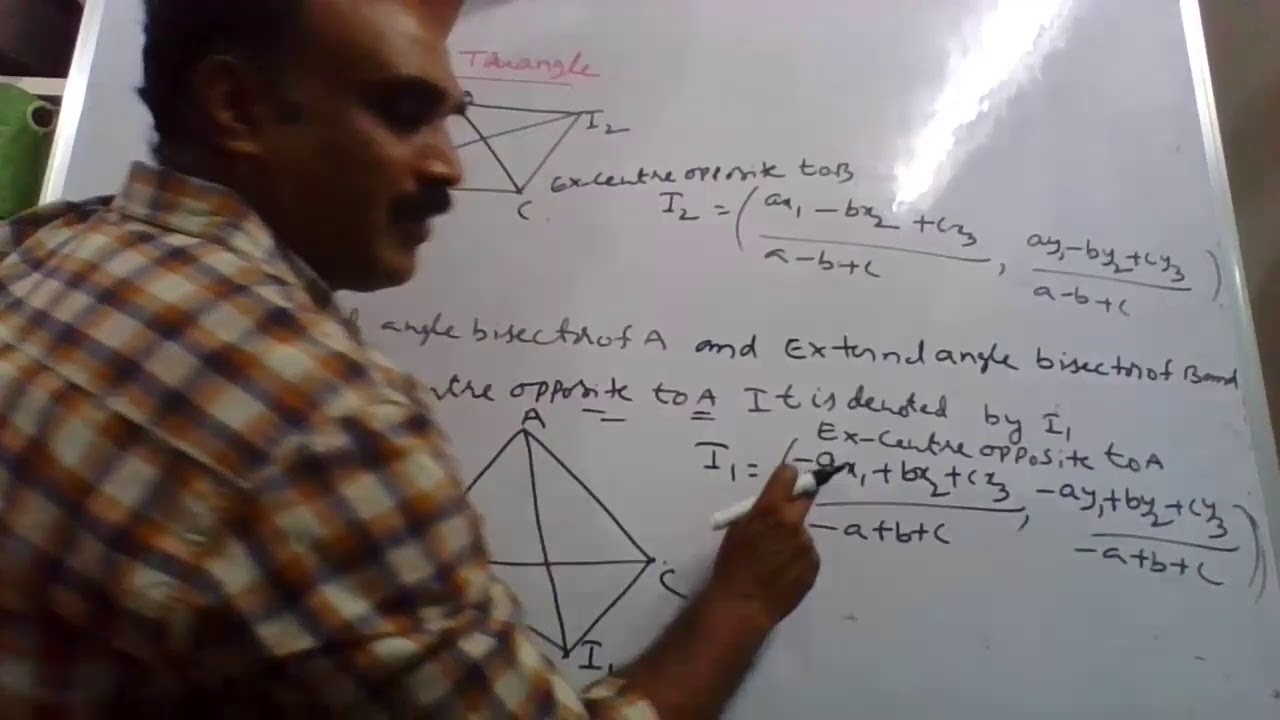 Triangle
I2
C
Ex-centre opposite to B
I2 = ( ax1 - bx2 + cx3 / a-b+c , ay1-by2+cy3 / a-b+c )
angle bisector of A and External angle bisector of B and
opposite to A It is denoted by I1
A
Ex-centre opposite to A
I1 = ( -ax1 + bx2 + cx3 / -a+b+c , -ay1+by2+cy3 / -a+b+c )
C
I1